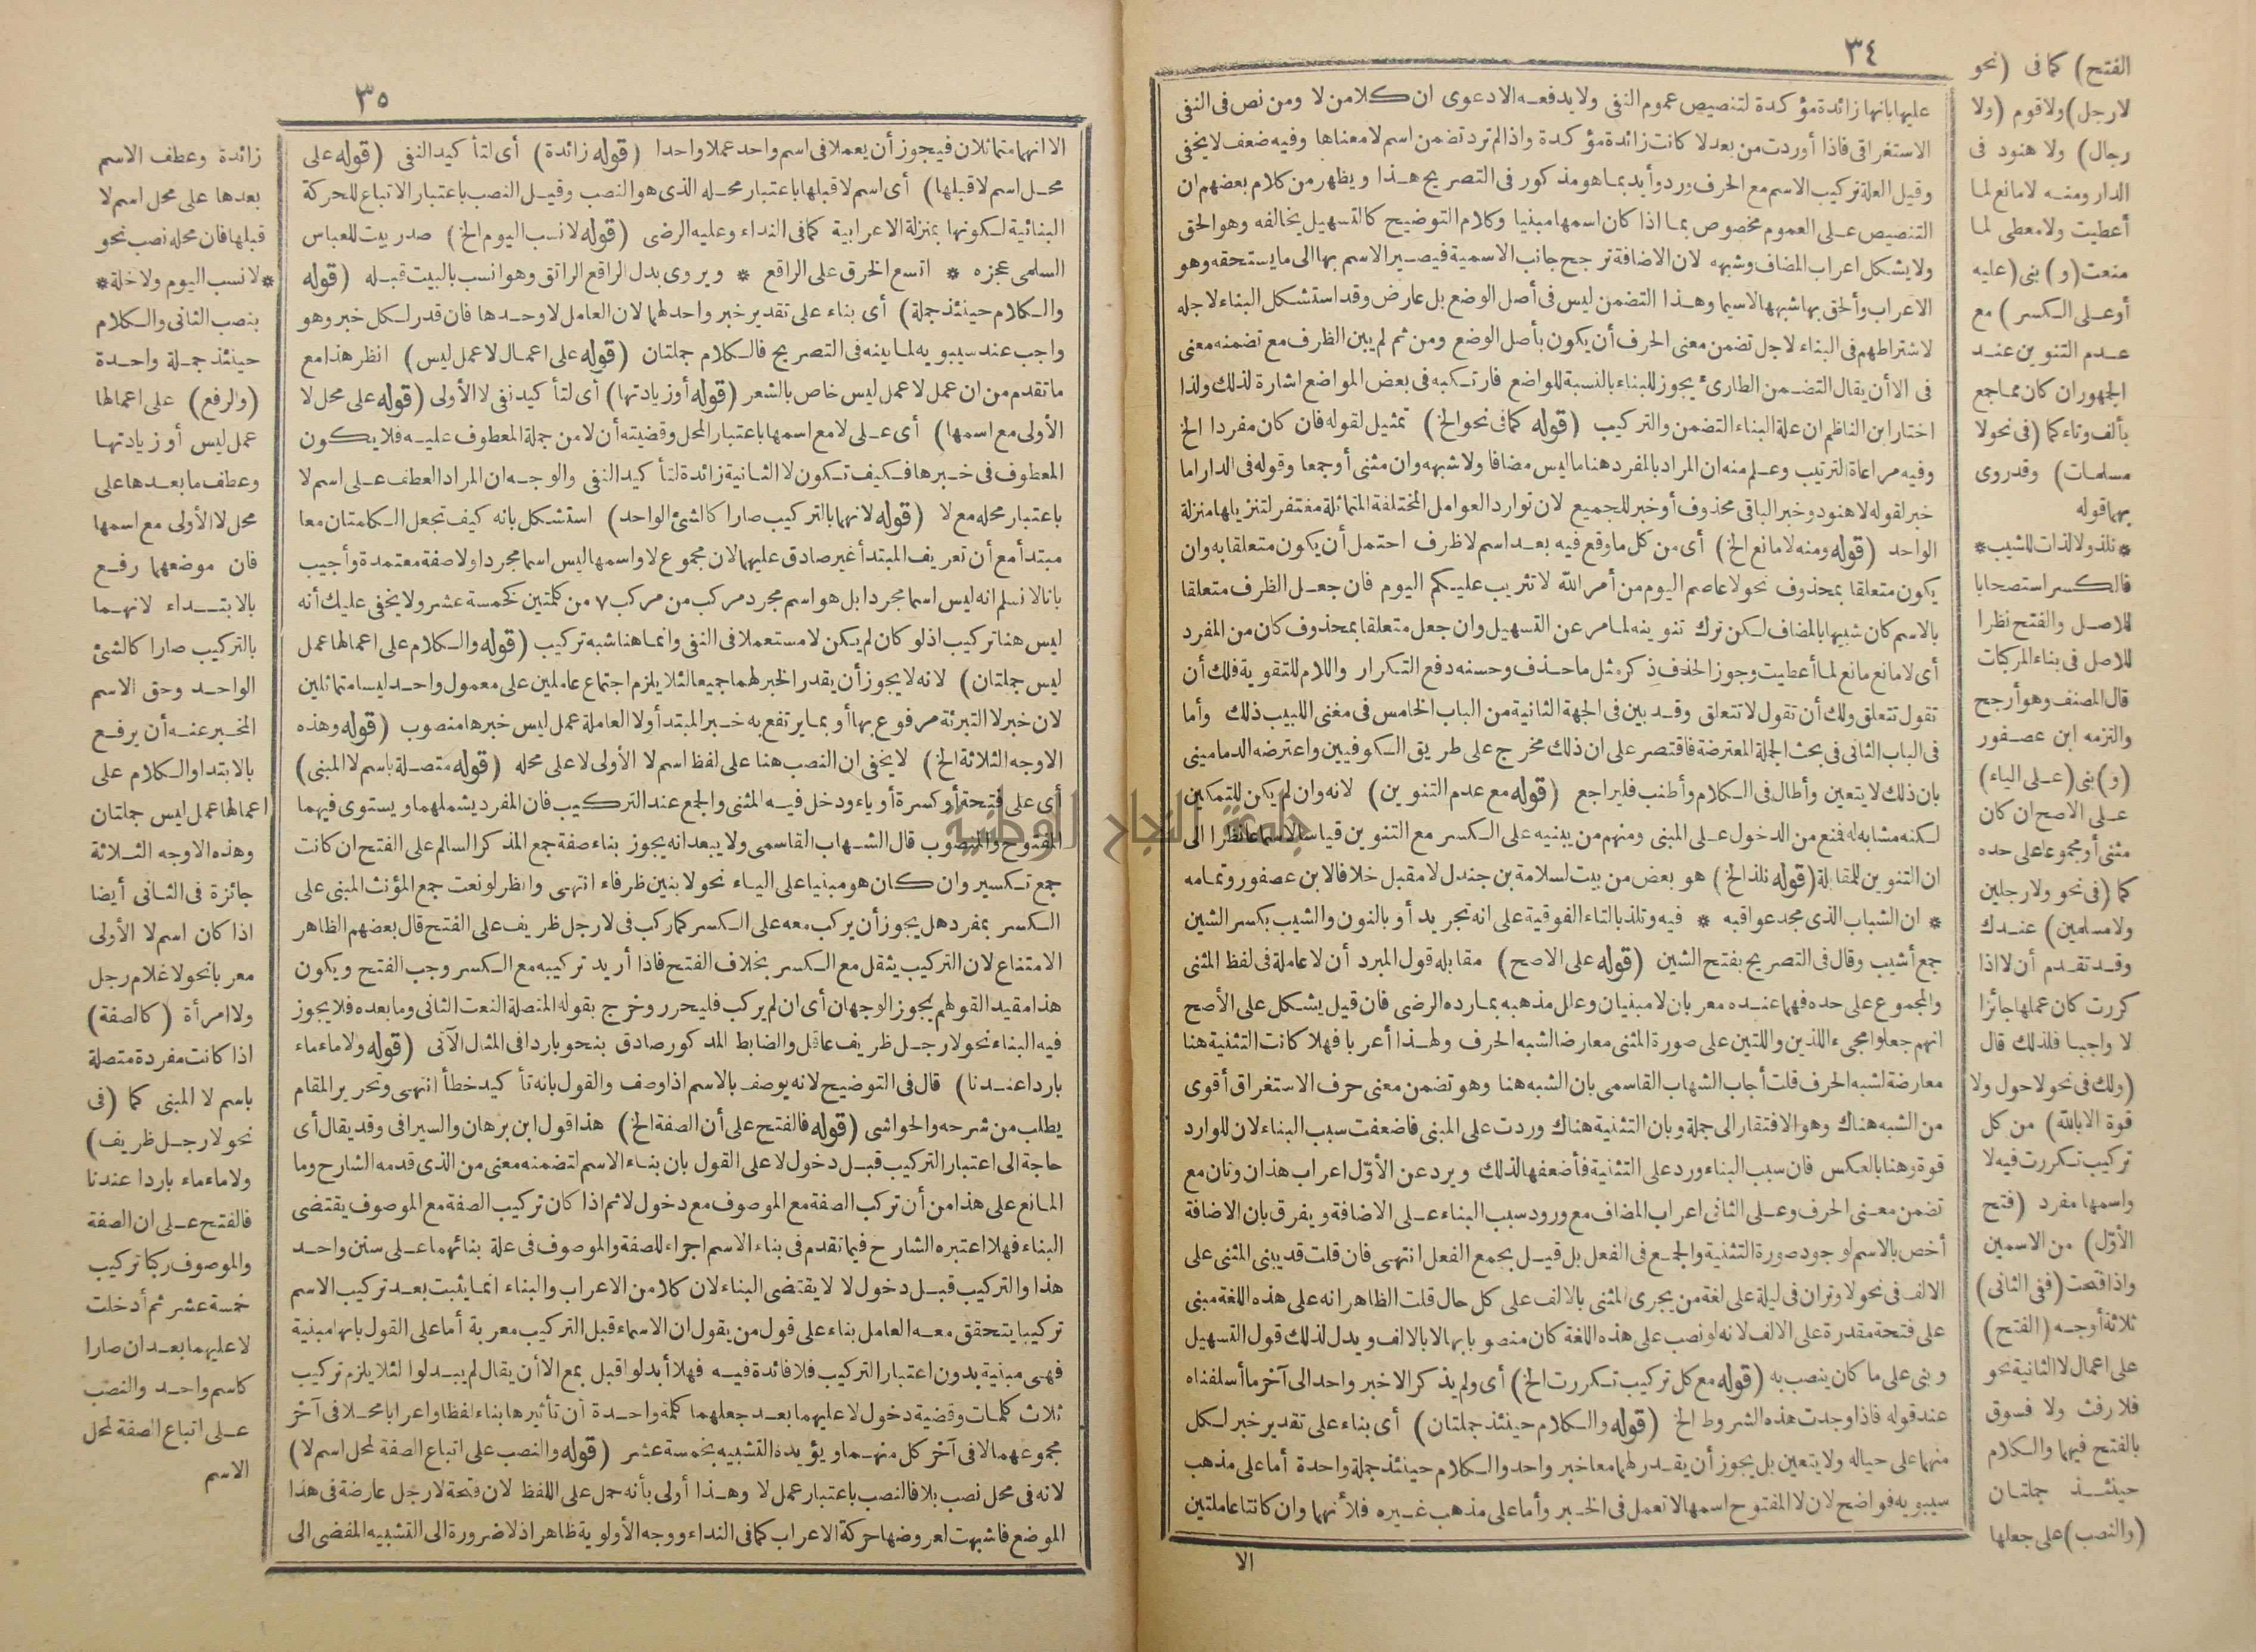 ٣٤
عليها بانها زائدة مؤكدة لتنصيص عموم النفى ولا يدفعه الادعوى ان كلا من لا ومن نص فى النفى
الاستغراقى فاذا أوردت من بعد لا كانت زائدة مؤكدة واذا لم ترد تضمن اسم لا معناها وفيه ضعف لا يخفى
وقيل العلة تركيب الاسم مع الحرف ورد وأيد بما هو مذكور فى التصريح هذا ويظهر من كلام بعضهم ان
التنصيص على العموم مخصوص بما اذا كان اسمها مبنيا وكلام التوضيح كالتسهيل يخالفه وهو الحق
ولا يشكل اعراب المضاف وشبهه لان الاضافة ترجح جانب الاسمية فيصير الاسم بها الى ما يستحقه وهو
الاعراب وألحق بها شبهها لاسيما وهذا التضمن ليس فى أصل الوضع بل عارض وقد استشكل البناء لاجله
لاشتراطهم فى البناء لاجل تضمن معنى الحرف أن يكون بأصل الوضع ومن ثم لم يبين الظرف مع تضمنه معنى
فى الا أن يقال التضمن الطارئ يجوز للبناء بالنسبة للمواضع فارتكبه فى بعض المواضع اشارة لذلك ولذا
اختار ابن الناظم ان علة البناء التضمن والتركيب (قوله كما فى نحو الخ) تمثيل لقوله فان كان مفردا الخ
وفيه مراعاة الترتيب وعلم منه ان المراد بالمفرد هنا ما ليس مضافا ولا شبهه وان مثنى أو جمعا وقوله فى الدار اما
خبر لقوله لا هنود وخبر الباقى محذوف أو خبر للجميع لان توارد العوامل المختلفة المتماثلة مغتفر لتنزيلها منزلة
الواحد (قوله ومنه لا مانع الخ) أى من كل ما وقع فيه بعد اسم لا ظرف احتمل أن يكون متعلقا به وان
يكون متعلقا بمحذوف نحو لا عاصم اليوم من أمر الله لا تثريب عليكم اليوم فان جعل الظرف متعلقا
بالاسم كان شبيها بالمضاف لكن ترك تنوينه لما مر عن التسهيل وان جعل متعلقا بمحذوف كان من المفرد
أى لا مانع مانع لما أعطيت وجوز الحذف ذكر مثل ما حذف وحسنه دفع التكرار واللام للتقوية فلك أن
تقول تتعلق ولك أن تقول لا تتعلق وقد بين فى الجهة الثانية من الباب الخامس فى مغنى اللبيب ذلك وأما
فى الباب الثانى فى بحث الجملة المعترضة فاقتصر على ان ذلك مخرج على طريق الكوفيين واعترضه الدمامينى
بان ذلك لا يتعين وأطال فى الكلام وأطنب فليراجع (قوله مع عدم التنوين) لانه وان لم يكن للتمكين
لكنه مشابه له فمنع من الدخول على المبنى ومنهم من يبنيه على الكسر مع التنوين قياسا لاسماعا نظرا الى
ان التنوين للمقابلة (قوله نلذ الخ) هو بعض من بيت لسلامة بن جندل لا مقبل خلافا لابن عصفور وتمامه
* ان الشباب الذى مجد عواقبه * فيه وتلذ بالتاء الفوقية على انه تجريد أو بالنون والشيب بكسر الشين
جمع أشيب وقال فى التصريح بفتح الشين (قوله على الاصح) مقابله قول المبرد أن لا عاملة فى لفظ المثنى
والمجموع على حده فهما عنده معربان لا مبنيان وعلل مذهبه بما رده الرضى فان قيل يشكل على الأصح
انهم جعلوا مجىء اللذين واللتين على صورة المثنى معارضا لشبه الحرف ولهذا أعربا فهلا كانت التثنية هنا
معارضة لشبه الحرف قلت أجاب الشهاب القاسمى بان الشبه هنا وهو تضمن معنى حرف الاستغراق أقوى
من الشبه هناك وهو الافتقار الى جملة وبان التثنية هناك وردت على المبنى فاضعفت سبب البناء لان للوارد
قوة وهنا بالعكس فان سبب البناء ورد على التثنية فأضعفها لذلك ويرد عن الأوّل اعراب هذان وتان مع
تضمن معنى الحرف وعلى الثانى اعراب المضاف مع ورود سبب البناء على الاضافة ويفرق بان الاضافة
أخص بالاسم لوجود صورة التثنية والجمع فى الفعل بل قيل بجمع الفعل انتهى فان قلت قد يبنى المثنى على
الالف فى نحو لا وتران فى ليلة على لغة من يجرى المثنى بالالف على كل حال قلت الظاهر انه على هذه اللغة مبنى
على فتحة مقدرة على الالف لانه لو نصب على هذه اللغة كان منصوبا بها لا بالالف ويدل لذلك قول التسهيل
وبنى على ما كان ينصب به (قوله مع كل تركيب تكررت الخ) أى ولم يذكر الا خبر واحد الى آخر ما أسلفناه
عند قوله فاذا وجدت هذه الشروط الخ (قوله والكلام حينئذ جملتان) أى بناء على تقدير خبر لكل
منهما على حياله ولا يتعين بل يجوز أن يقدر لهما معا خبر واحد والكلام حينئذ جملة واحدة أما على مذهب
سيبويه فواضح لان لا المفتوح اسمها لا تعمل فى الخبر وأما على مذهب غيره فلأنهما وان كانتا عاملتين
الا
الفتح) كما فى (نحو
لا رجل) ولا قوم (ولا
رجال) ولا هنود فى
الدار ومنه لا مانع لما
أعطيت ولا معطى لما
منعت (و) بنى (عليه
أو على الكسر) مع
عدم التنوين عند
الجمهور ان كان مما جمع
بألف وتاء كما (فى نحو لا
مسلمات) وقد روى
بهما قوله
* نلذ ولا لذات للشيب *
فالكسر استصحابا
للاصل والفتح نظرا
للاصل فى بناء المركبات
قال المصنف وهو أرجح
والتزمه ابن عصفور
(و) بنى (على الياء)
على الاصح ان كان
مثنى أو مجموعا على حده
كما (فى نحو ولا رجلين
ولا مسلمين) عندك
وقد تقدم أن لا اذا
كررت كان عملها جائزا
لا واجبا فلذلك قال
(ولك فى نحو لا حول ولا
قوة الا بالله) من كل
تركيب تكررت فيه لا
واسمها مفرد (فتح
الأوّل) من الاسمين
واذا فتحت (ففى الثانى)
ثلاثة أوجه (الفتح)
على اعمال لا الثانية نحو
فلا رفث ولا فسوق
بالفتح فيهما والكلام
حينئذ جملتان
(والنصب) على جعلها
٣٥
الا انهما متماثلان فيجوز أن يعملا فى اسم واحد عملا واحدا (قوله زائدة) أى لتأكيد النفى (قوله على
محل اسم لا قبلها) أى اسم لا قبلها باعتبار محله الذى هو النصب وقيل النصب باعتبار الاتباع للحركة
البنائية لكونها بمنزلة الاعرابية كما فى النداء وعليه الرضى (قوله لا نسب اليوم الخ) صدر بيت للعباس
السلمى عجزه * اتسع الخرق على الراقع * ويروى بدل الراقع الراتق وهو أنسب بالبيت قبله (قوله
والكلام حينئذ جملة) أى بناء على تقدير خبر واحد لهما لان العامل لا وحدها فان قدر لكل خبر وهو
واجب عند سيبويه لما بينه فى التصريح فالكلام جملتان (قوله على اعمال لا عمل ليس) انظر هذا مع
ما تقدم من ان عمل لا عمل ليس خاص بالشعر (قوله أو زيادتها) أى لتأكيد نفى لا الأولى (قوله على محل لا
الأولى مع اسمها) أى على لا مع اسمها باعتبار المحل وقضيته أن لا من جملة المعطوف عليه فلا يكون
المعطوف فى خبرها فكيف تكون لا الثانية زائدة لتأكيد النفى والوجه ان المراد العطف على اسم لا
باعتبار محله مع لا (قوله لانهما بالتركيب صارا كالشئ الواحد) استشكل بانه كيف تجعل الكلمتان معا
مبتدأ مع أن تعريف المبتدأ غير صادق عليهما لان مجموع لا واسمها ليس اسما مجردا ولا صفة معتمدة وأجيب
بانا لا نسلم انه ليس اسما مجردا بل هو اسم مجرد مركب من مركب ٧ من كلمتين كخمسة عشر ولا يخفى عليك أنه
ليس هنا تركيب اذ لو كان لم يكن لا مستعملا فى النفى وانما هنا شبه تركيب (قوله والكلام على اعمالها عمل
ليس جملتان) لانه لا يجوز أن يقدر الخبر لهما جميعا لئلا يلزم اجتماع عاملين على معمول واحد ليسا متماثلين
لان خبر لا التبرئة مرفوع بها أو بما يرتفع به خبر المبتدأ ولا العاملة عمل ليس خبرها منصوب (قوله وهذه
الاوجه الثلاثة الخ) لا يخفى ان النصب هنا على لفظ اسم لا الأولى لا على محله (قوله متصلة باسم لا المبنى)
أى على فتحة أو كسرة أو ياء ودخل فيه المثنى والجمع عند التركيب فان المفرد يشملهما ويستوى فيهما
المفتوح والمنصوب قال الشهاب القاسمى ولا يبعد انه يجوز بناء صفة جمع المذكر السالم على الفتح ان كانت
جمع تكسير وان كان هو مبنيا على الياء نحو لا بنين ظرفاء انتهى وانظر لو نعت جمع المؤنث المبنى على
الكسر بمفرد هل يجوز أن يركب معه على الكسر كما ركب فى لا رجل ظريف على الفتح قال بعضهم الظاهر
الامتناع لان التركيب يثقل مع الكسر بخلاف الفتح فاذا أريد تركيبه مع الكسر وجب الفتح ويكون
هذا مقيدا لقولهم يجوز الوجهان أى ان لم يركب فليحرر وخرج بقوله المتصلة النعت الثانى وما بعده فلا يجوز
فيه البناء نحو لا رجل ظريف عاقل والضابط المذكور صادق بنحو باردا فى المثال الآتى (قوله ولا ماء ماء
باردا عندنا) قال فى التوضيح لانه يوصف بالاسم اذا وصف والقول بانه تأكيد خطأ انتهى وتحرير المقام
يطلب من شرحه والحواشى (قوله فالفتح على أن الصفة الخ) هذا قول ابن برهان والسيرافى وقد يقال أى
حاجة الى اعتبار التركيب قبل دخول لا على القول بان بناء الاسم لتضمنه معنى من الذى قدمه الشارح وما
المانع على هذا من أن تركب الصفة مع الموصوف مع دخول لا ثم اذا كان تركيب الصفة مع الموصوف يقتضى
البناء فهلا اعتبره الشارح فيما تقدم فى بناء الاسم اجراء للصفة والموصوف فى علة بنائهما على سنن واحد
هذا والتركيب قبل دخول لا لا يقتضى البناء لان كلا من الاعراب والبناء انما يثبت بعد تركيب الاسم
تركيبا يتحقق معه العامل بناء على قول من يقول ان الاسماء قبل التركيب معربة أما على القول بانها مبنية
فهى مبنية بدون اعتبار التركيب فلا فائدة فيه فهلا أبدلوا قبل بمع الا أن يقال لم يبدلوا لئلا يلزم تركيب
ثلاث كلمات وقضية دخول لا عليهما بعد جعلهما كلمة واحدة أن تأثيرها بناء لفظا واعرابا محلا فى آخر
مجموعهما لا فى آخر كل منهما ويؤيده التشبيه بخمسة عشر (قوله والنصب على اتباع الصفة لمحل اسم لا)
لانه فى محل نصب بلا فالنصب باعتبار عمل لا وهذا أولى بأنه حمل على اللفظ لان فتحة لا رجل عارضة فى هذا
الموضع فاشبهت لعروضها حركة الاعراب كما فى النداء ووجه الأولوية ظاهر اذ لا ضرورة الى التشبيه المفضى الى
زائدة وعطف الاسم
بعدها على محل اسم لا
قبلها فان محله نصب نحو
* لا نسب اليوم ولا خلة *
بنصب الثانى والكلام
حينئذ جملة واحدة
(والرفع) على اعمالها
عمل ليس أو زيادتها
وعطف ما بعدها على
محل لا الأولى مع اسمها
فان موضعهما رفع
بالابتداء لانهما
بالتركيب صارا كالشئ
الواحد وحق الاسم
المخبر عنه أن يرفع
بالابتدا والكلام على
اعمالها عمل ليس جملتان
وهذه الاوجه الثلاثة
جائزة فى الثانى أيضا
اذا كان اسم لا الأولى
معربا نحو لا غلام رجل
ولا امرأة (كالصفة)
اذا كانت مفردة متصلة
باسم لا المبنى كما (فى
نحو لا رجل ظريف)
ولا ماء ماء باردا عندنا
فالفتح على ان الصفة
والموصوف ركبا تركيب
خمسة عشر ثم أدخلت
لا عليهما بعد ان صارا
كاسم واحد والنصب
على اتباع الصفة لمحل
الاسم
جامعة النجاح الوطنية